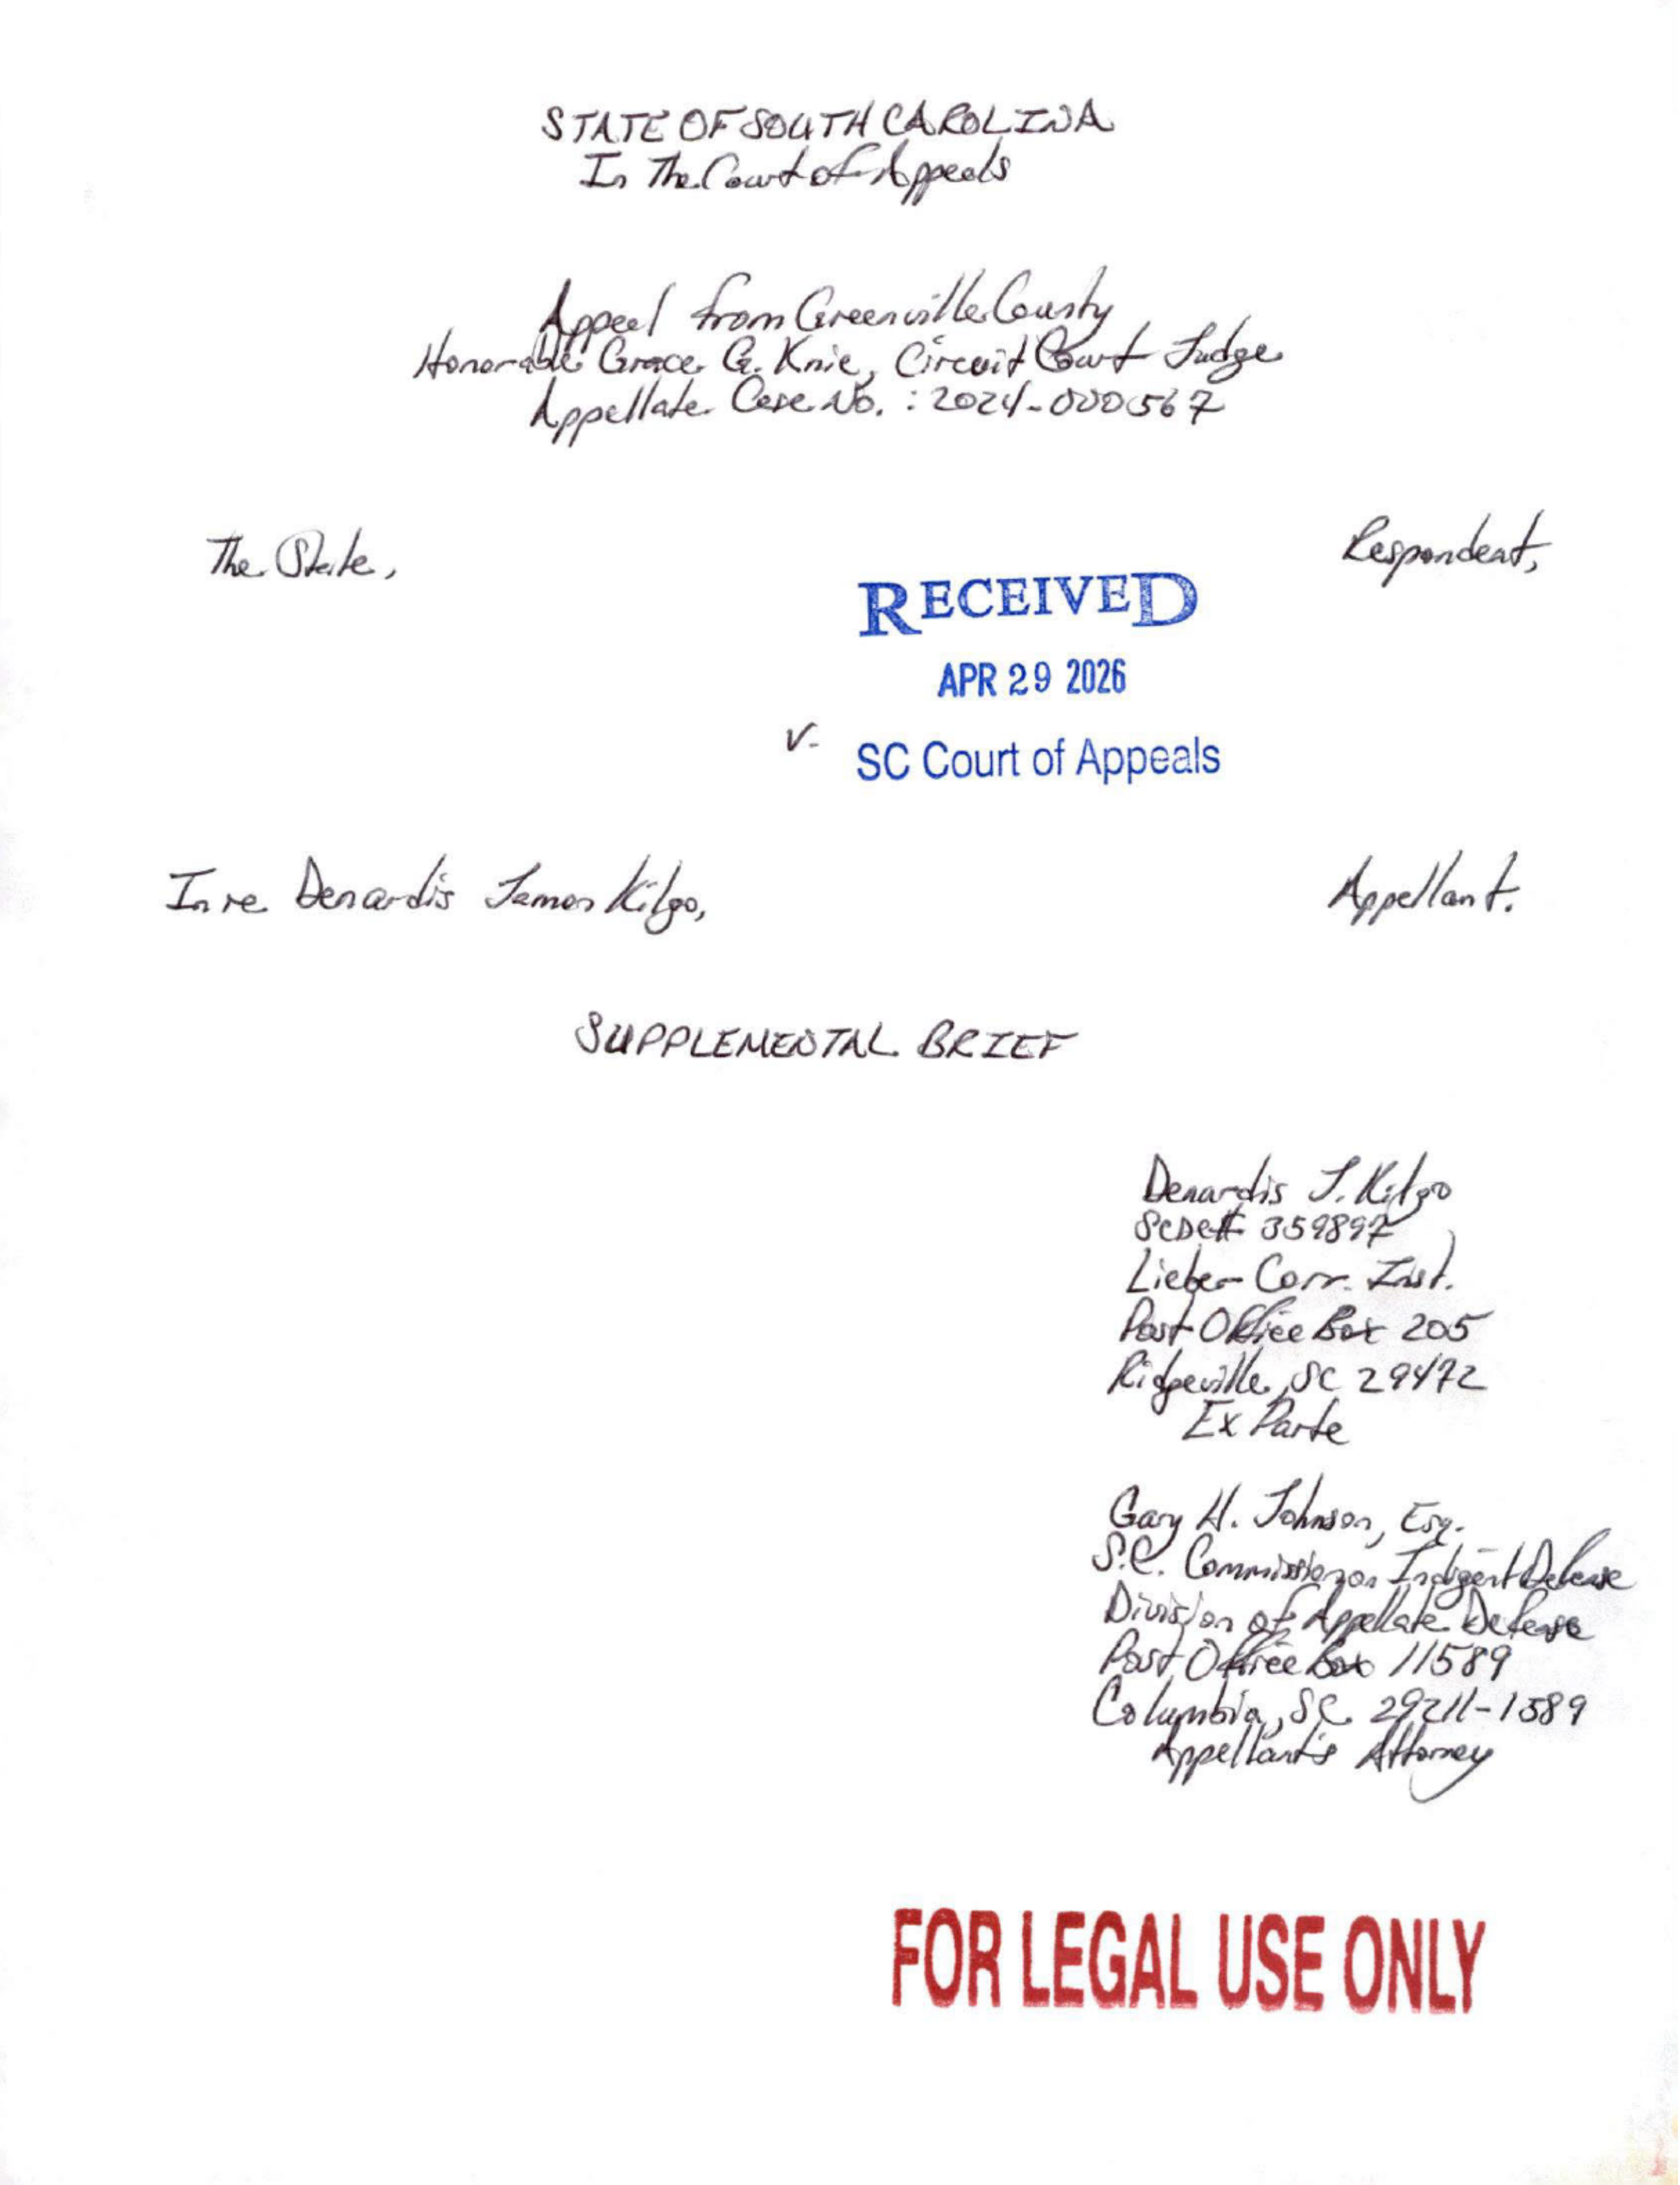 STATE OF SOUTH CAROLINA
In The Court of Appeals
Appeal from Greenville County
Honorable Grace G. Knie, Circuit Court Judge
Appellate Case No. : 2024-000567
The State,
Respondent,
RECEIVED
APR 29 2026
v.
SC Court of Appeals
In re Denardis Jamon Kilgo,
Appellant.
SUPPLEMENTAL BRIEF
Denardis J. Kilgo
SCDC# 359897
Lieber Corr. Inst.
Post Office Box 205
Ridgeville, SC 29472
Ex Parte
Gary H. Johnson, Esq.
S.C. Commission on Indigent Defense
Division of Appellate Defense
Post Office Box 11589
Columbia, SC 29211-1589
Appellant's Attorney
FOR LEGAL USE ONLY